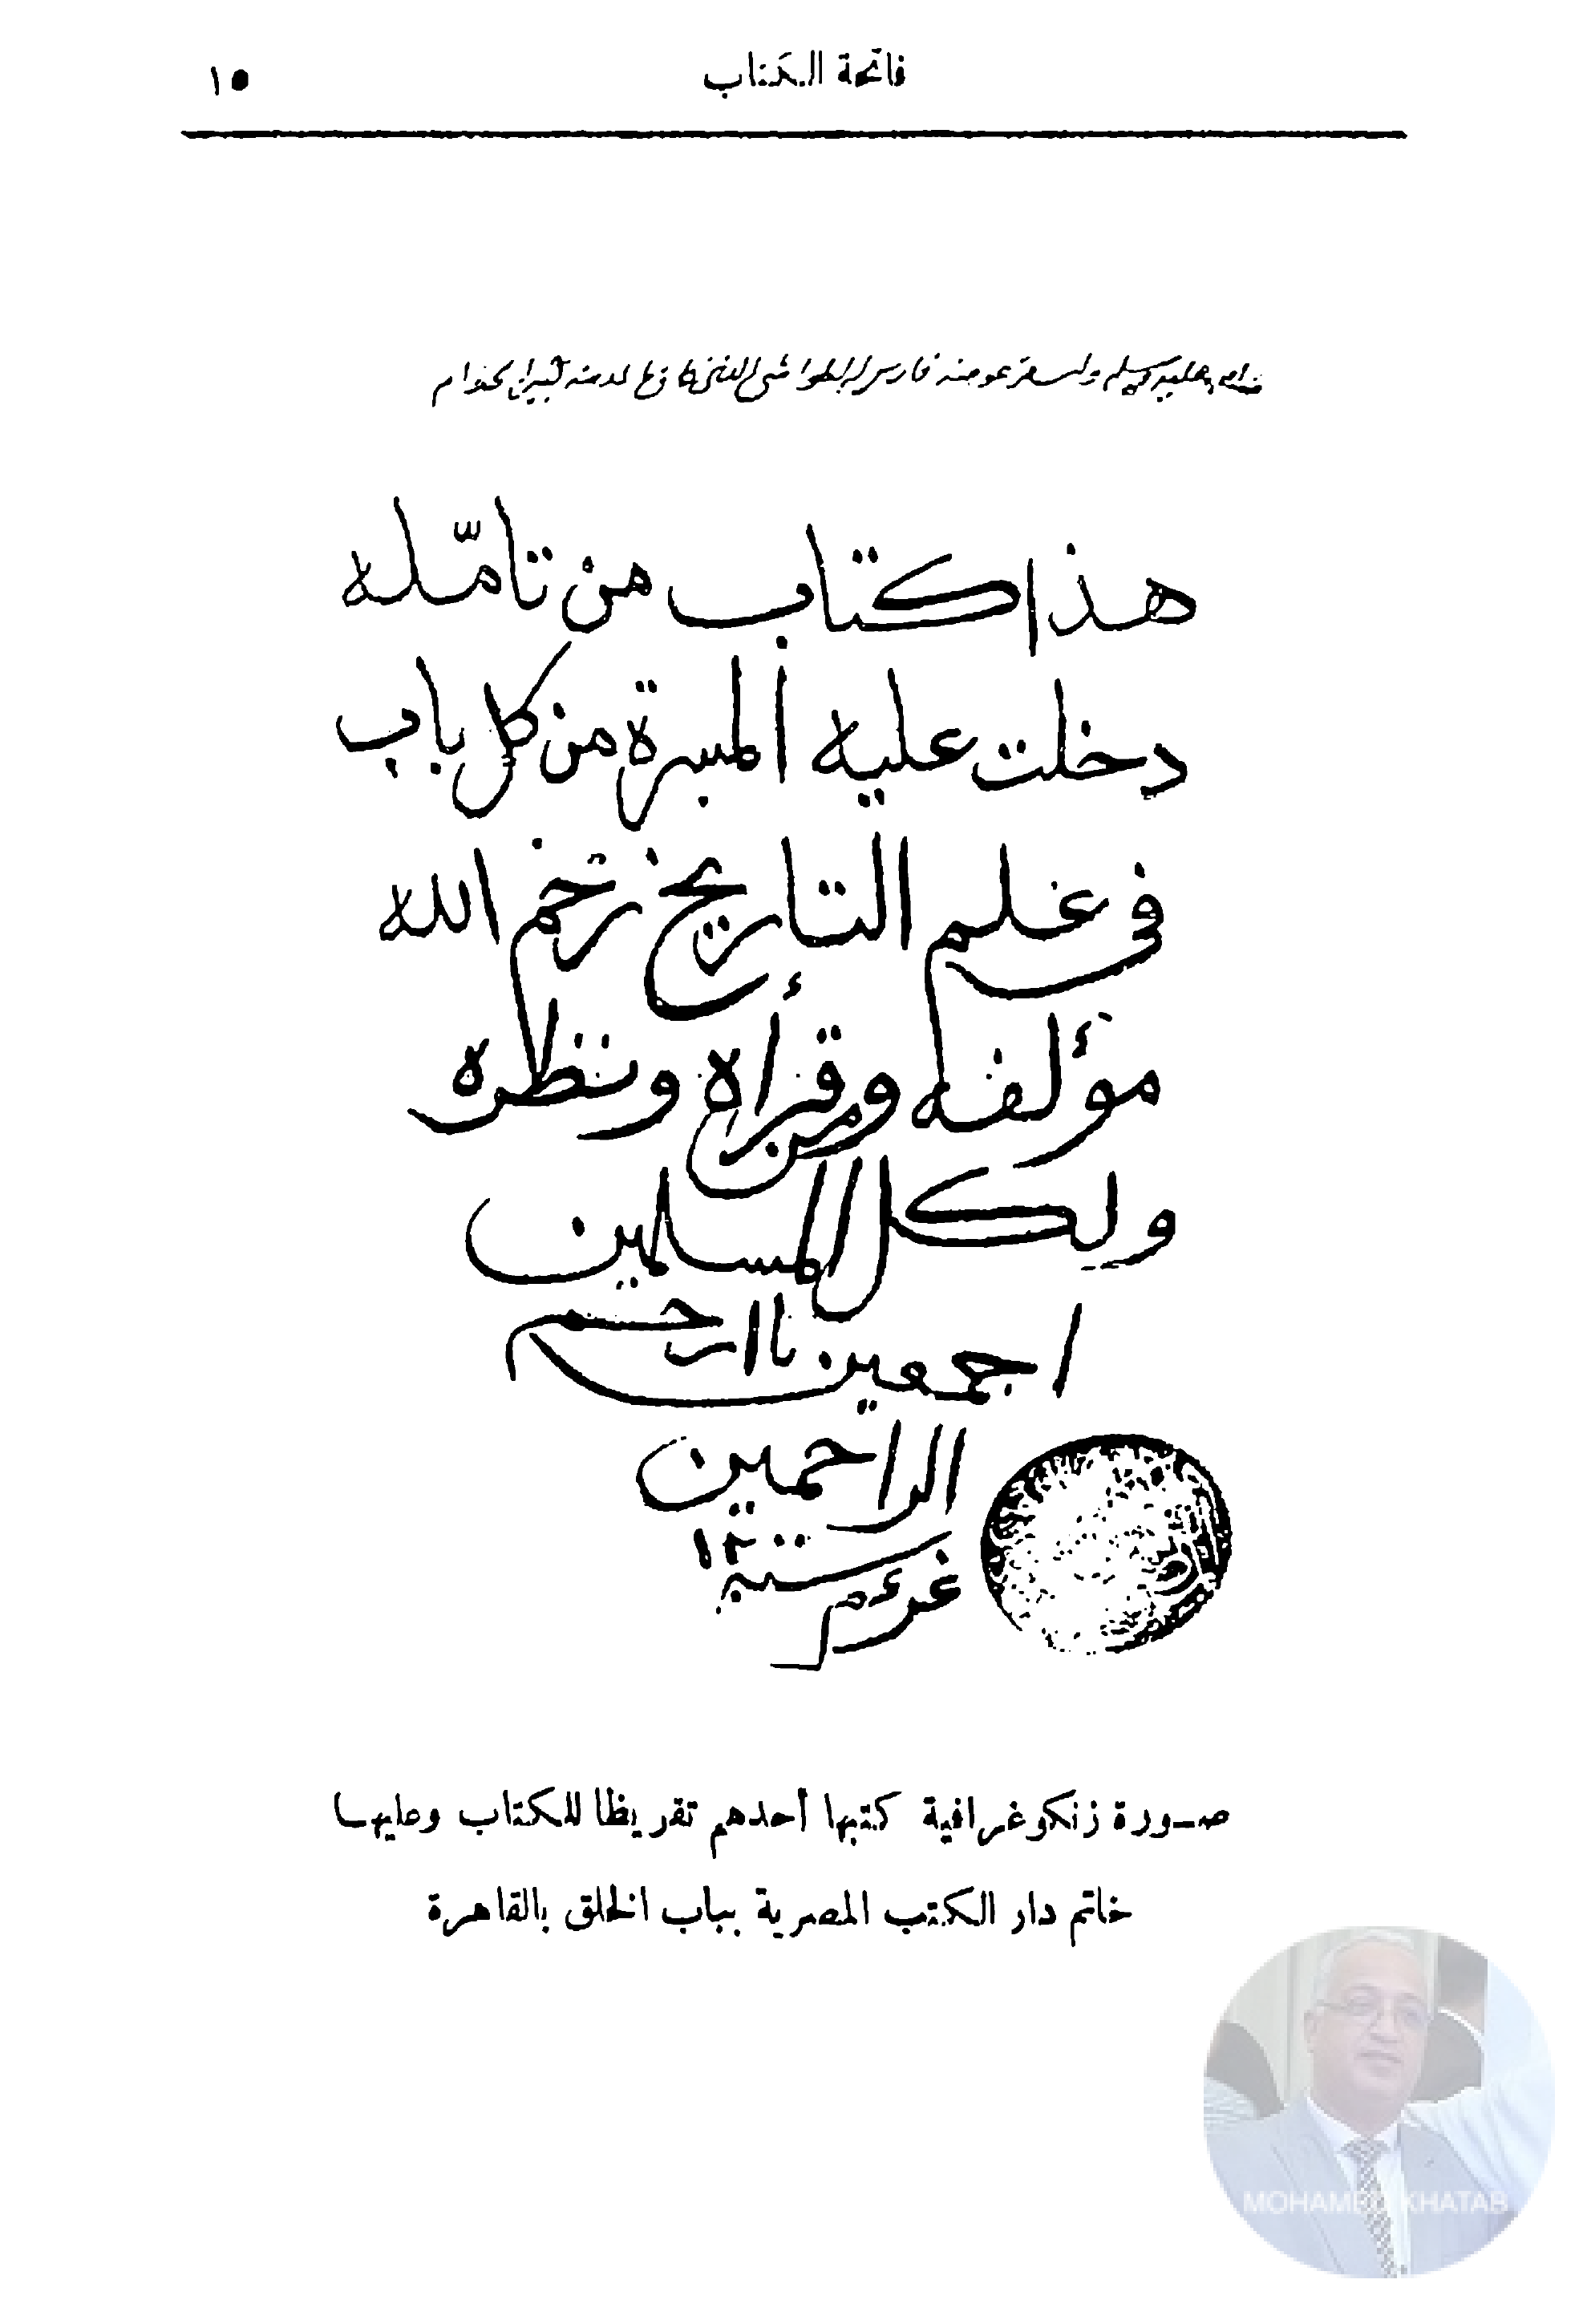 فاتحة الكتاب
١٥
هذا كتاب من تأمّله
دخلت عليه المسرة من كل باب
في علم التاريخ رحم الله
مؤلفه ومن قرأه ونظره
ولكل المسلمين
اجمعين يا ارحم
الراحمين
سنة ١٢٠٠
صورة زنكوغرافية كتبها أحدهم تقريظا للكتاب وعليها
خاتم دار الكتب المصرية بباب الخلق بالقاهرة
MOHAMED KHATAB